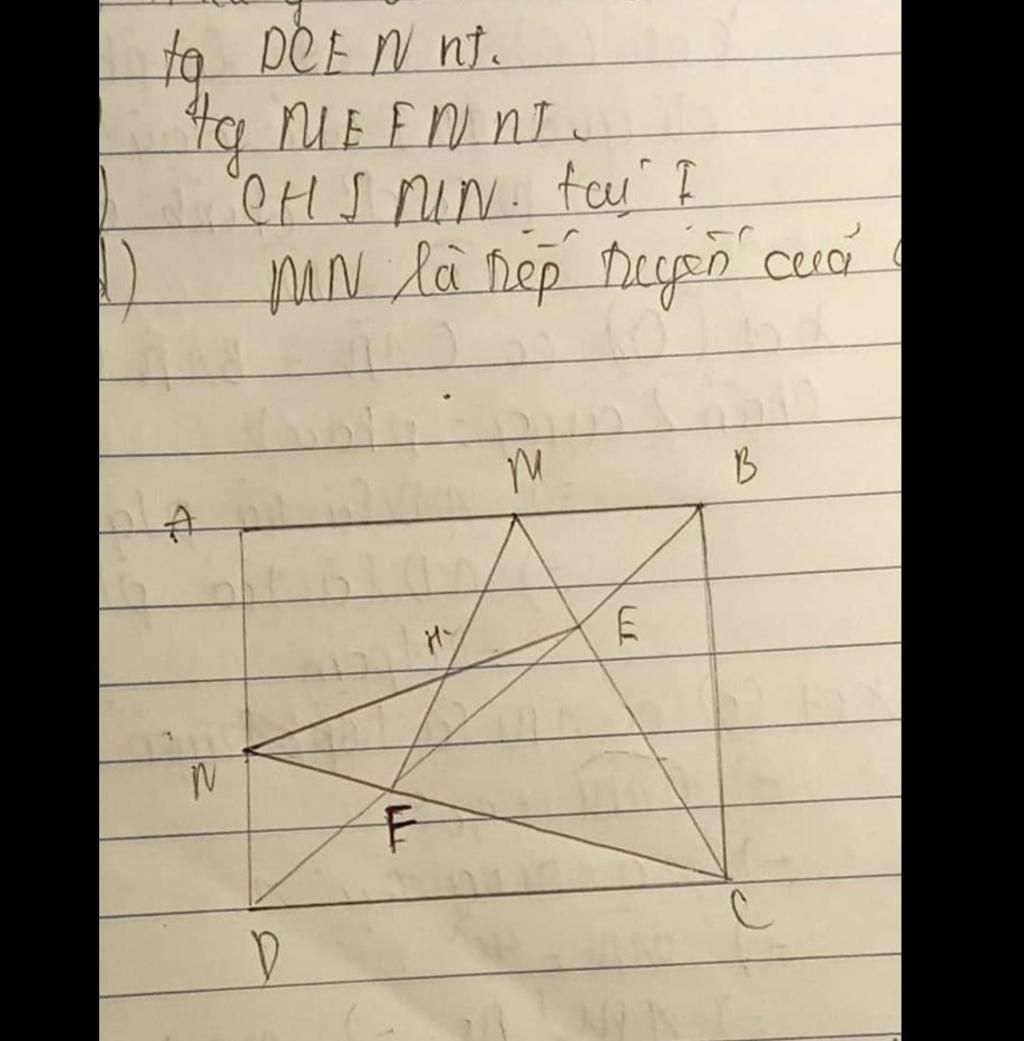 tg DCEN nt.
tg MEFN nt.
CH ⊥ MN. tại I
d) MN là tiếp tuyến của
M
B
A
E
H
N
F
C
D